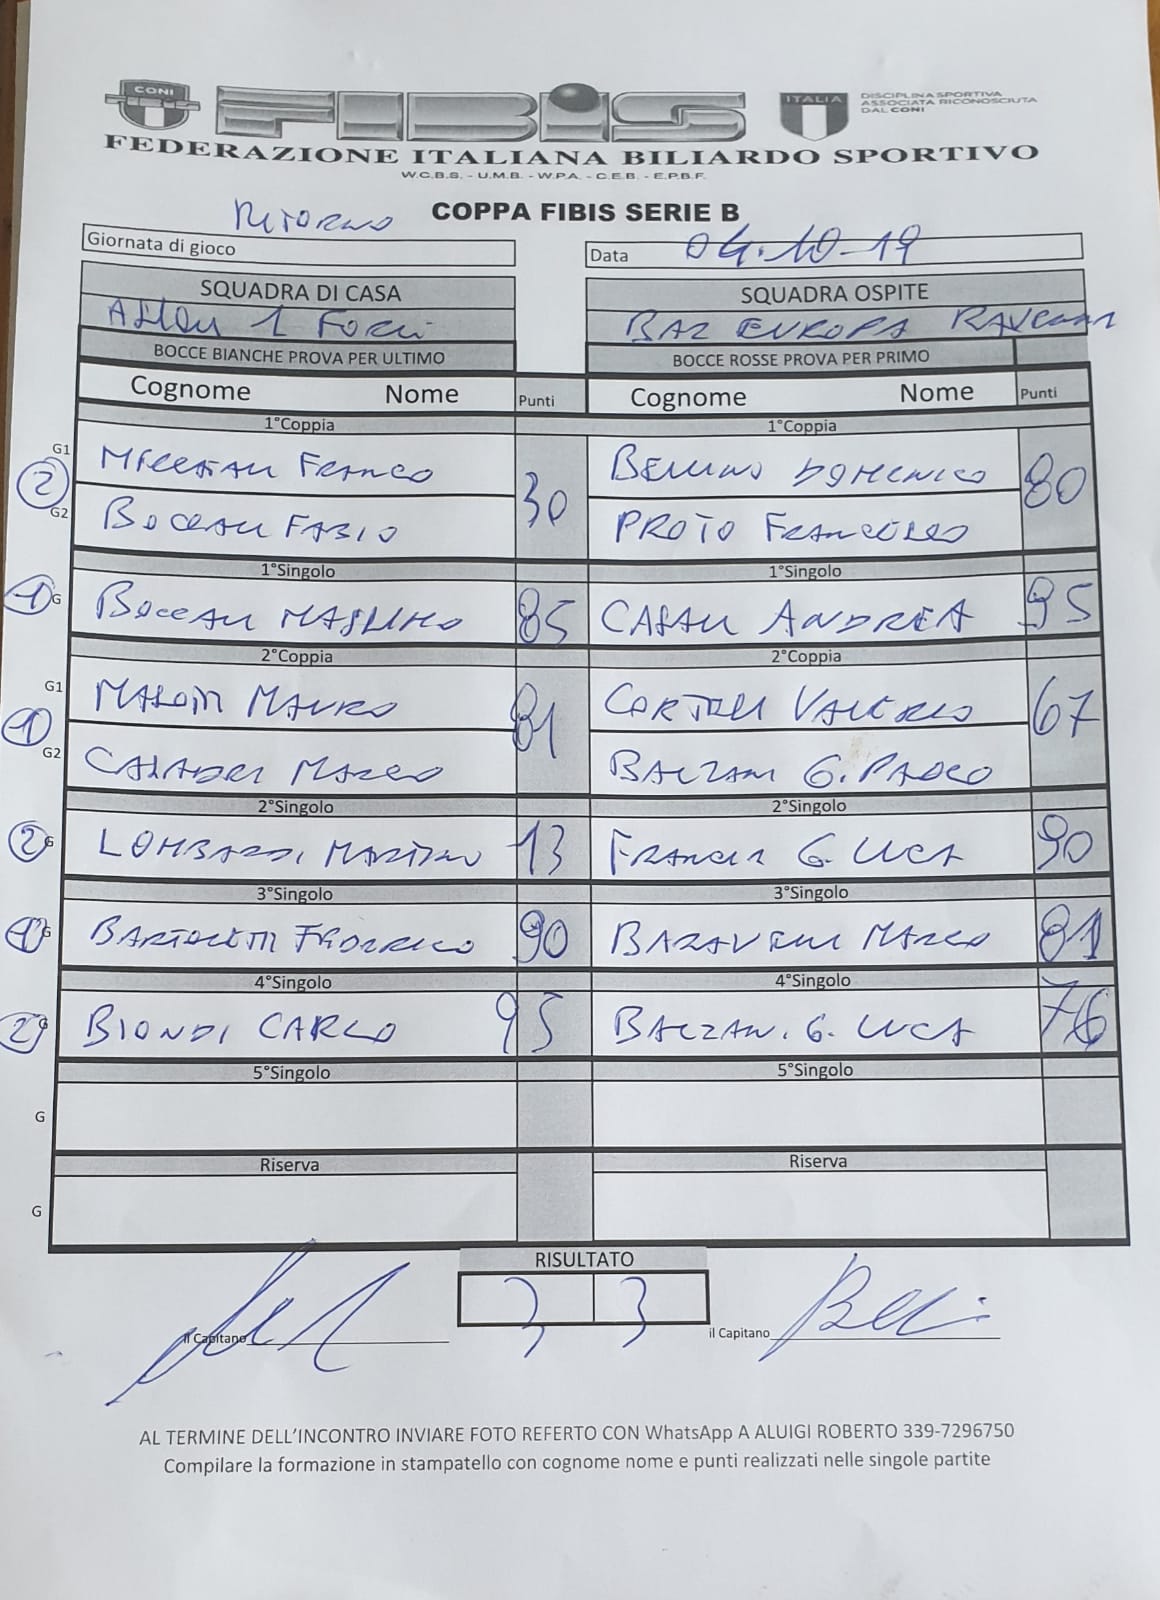 CONI
FIBiS
ITALIA
DISCIPLINA SPORTIVA
ASSOCIATA RICONOSCIUTA
DAL CONI
FEDERAZIONE ITALIANA BILIARDO SPORTIVO
W.C.B.S. - U.M.B. - W.P.A. - C.E.B. - E.P.B.F.
RITORNO
COPPA FIBIS SERIE B
Giornata di gioco
Data 04.10-19
SQUADRA DI CASA SQUADRA OSPITE
1 FORLI BAR EUROPA RAVENNA
BOCCE BIANCHE PROVA PER ULTIMO BOCCE ROSSE PROVA PER PRIMO
Cognome Nome Punti Cognome Nome Punti
1°Coppia 1°Coppia
G1 FRANCO 30 DOMENICO 80
2
G2 FABIO PROTO FRANCESCO
1°Singolo 1°Singolo
1 G MASSIMO 85 CASALI ANDREA 95
2°Coppia 2°Coppia
G1 MAURO 81 VALERIO 67
1
G2 CASADEI MARCO BALZANI G. PAOLO
2°Singolo 2°Singolo
2 G LOMBARDI MARTINO 13 FRANCIA G. LUCA 90
3°Singolo 3°Singolo
1 G BARTOLETTI FEDERICO 90 BARAVELLI MARCO 81
4°Singolo 4°Singolo
2 G BIONDI CARLO 95 BALZANI G. LUCA 76
5°Singolo 5°Singolo
G
Riserva Riserva
G
RISULTATO
3 3
il Capitano il Capitano
AL TERMINE DELL'INCONTRO INVIARE FOTO REFERTO CON WhatsApp A ALUIGI ROBERTO 339-7296750
Compilare la formazione in stampatello con cognome nome e punti realizzati nelle singole partite